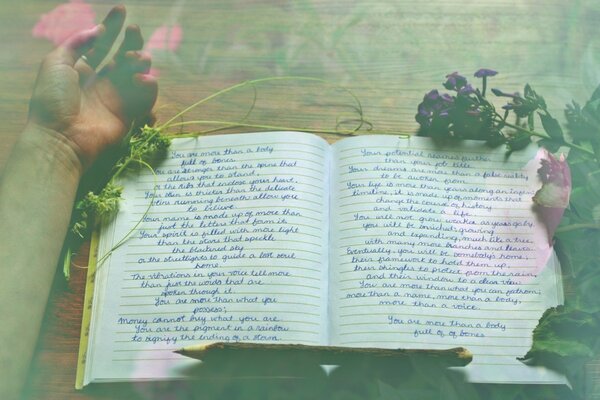 You are more than a body
full of bones.
You are stronger than the spine that
allows you to stand,
or the ribs that endose your heart.
Your life is thicker than the delicate
lining beneath allow you
to believe.
Your name is made up of more than
just the letters that form it.
Your spirit is filled with more light
than the stars that speckle
the blackened sky
or the streetlights to guide a lost soul
home.
The vibrations in your voice tell more
than just the words that are
spoken through it.
You are more than what you
possess;
Money cannot buy what you are.
You are the pigment in a rainbow
to signify the ending of a storm.
Your potential reaches further
than your feet.
Your dreams are more than a false reality
to be sold.
Your life is more than years along an
timeline, it is made up of moments that
change the course of history
and validate a life.
You will not grow weaker as years go by,
you will be enriched, growing
and expanding, much like a tree,
with many more branches and leaves.
Eventually, you will be somebody's home,
their framework to hold them up,
their shingles to protect from the rain,
and their window to a clear day.
You are more than what you can fathom,
more than a name, more than a body,
more than a voice.
You are more than a body
full of of bones.